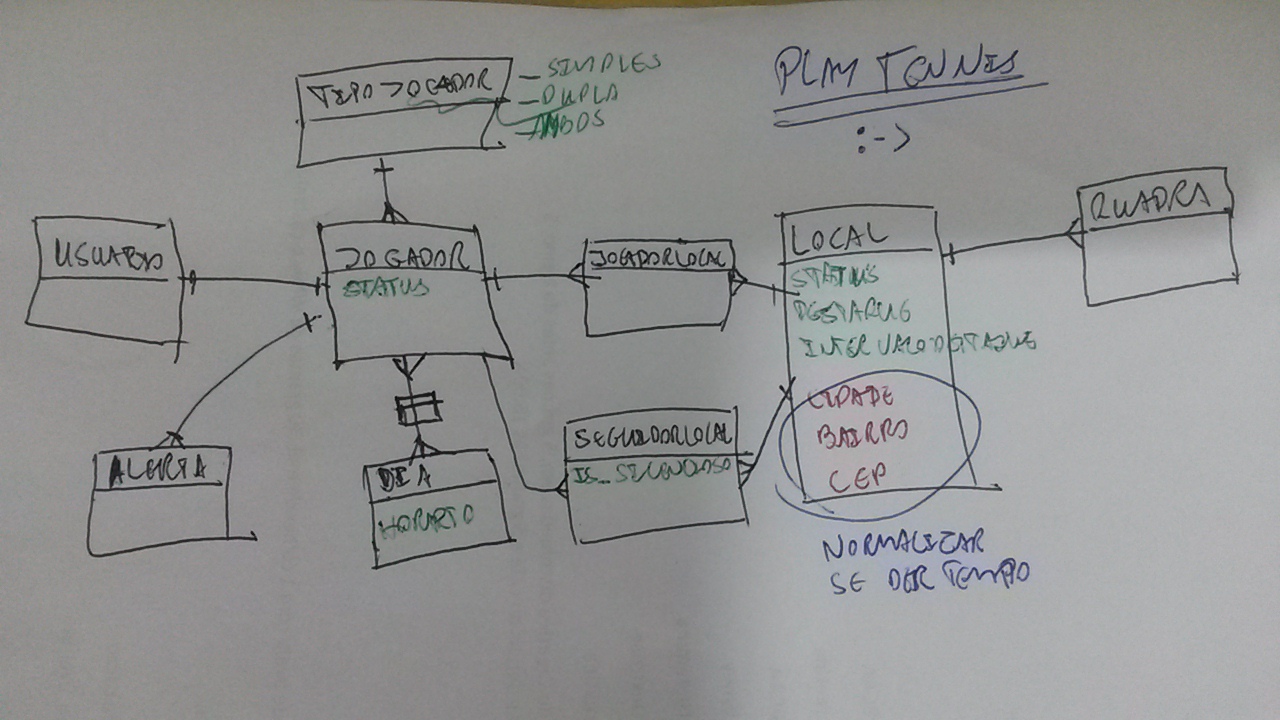 PLAY TENNIS
:->
TIPO JOGADOR
- SIMPLES
- DUPLA
- AMBOS
USUARIO
JOGADOR
STATUS
JOGADORLOCAL
LOCAL
STATUS
DESTAQUE
INTERVALODESTAQUE
CIDADE
BAIRRO
CEP
QUADRA
ALERTA
DIA
HORARIO
SEGUIDORLOCAL
IS_SILENCIOSO
NORMALIZAR
SE DER TEMPO